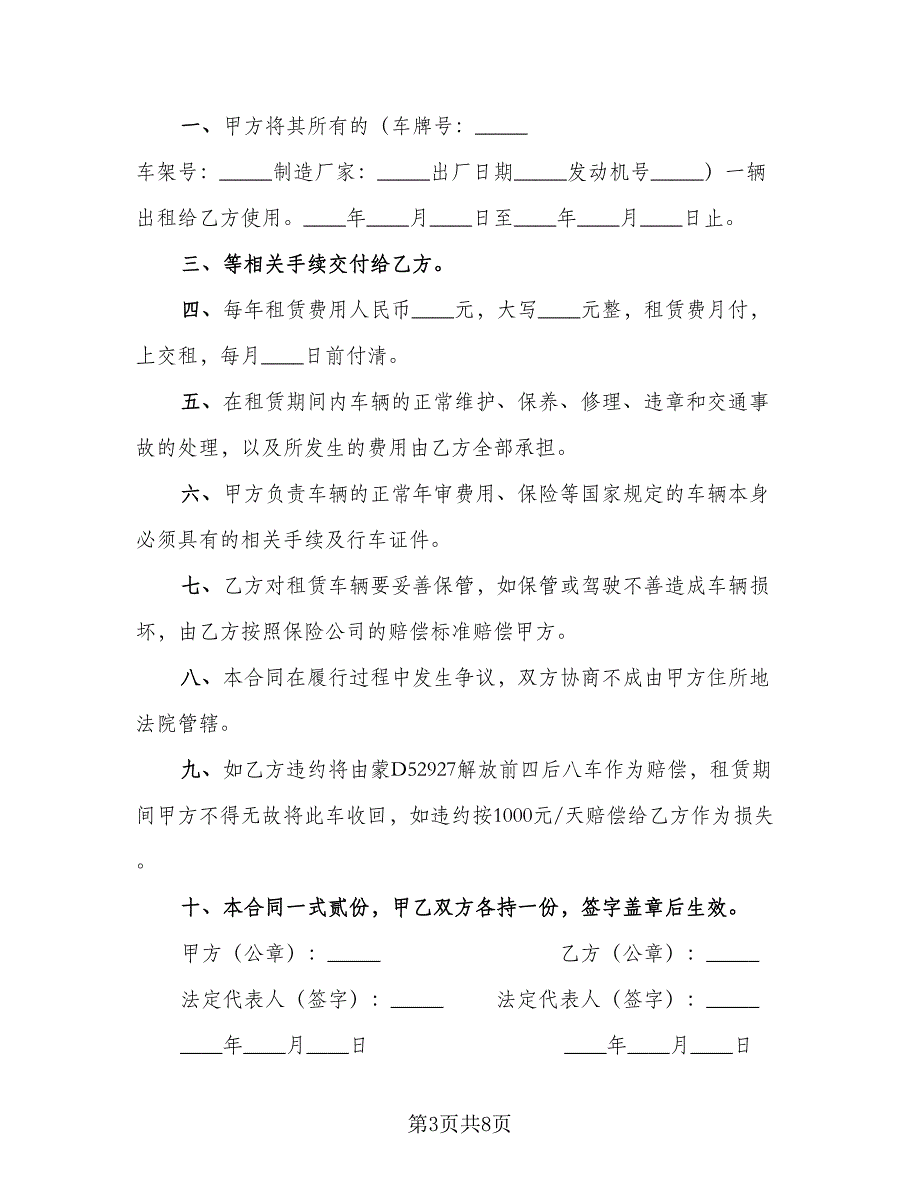 一、甲方将其所有的（车牌号：_____
车架号：_____制造厂家：_____出厂日期_____发动机号_____）一辆
出租给乙方使用。____年____月____日至____年____月____日止。
三、等相关手续交付给乙方。
四、每年租赁费用人民币____元，大写____元整，租赁费月付，
上交租，每月____日前付清。
五、在租赁期间内车辆的正常维护、保养、修理、违章和交通事
故的处理，以及所发生的费用由乙方全部承担。
六、甲方负责车辆的正常年审费用、保险等国家规定的车辆本身
必须具有的相关手续及行车证件。
七、乙方对租赁车辆要妥善保管，如保管或驾驶不善造成车辆损
坏，由乙方按照保险公司的赔偿标准赔偿甲方。
八、本合同在履行过程中发生争议，双方协商不成由甲方住所地
法院管辖。
九、如乙方违约将由蒙D52927解放前四后八车作为赔偿，租赁期
间甲方不得无故将此车收回，如违约按1000元/天赔偿给乙方作为损失
。
十、本合同一式贰份，甲乙双方各持一份，签字盖章后生效。
甲方（公章）：_____ 乙方（公章）：_____
法定代表人（签字）：_____ 法定代表人（签字）：_____
____年____月____日 ____年____月____日
第3页共8页